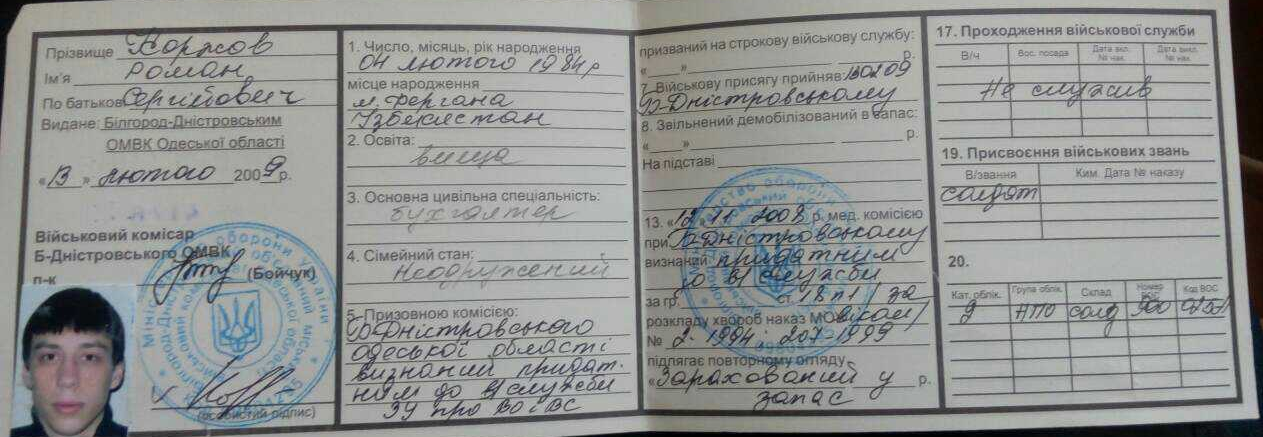 Прізвище Коржов
Ім'я Роман
По батькові Сергійович
Видане: Білгород-Дністровським
ОМВК Одеської області
«13» лютого 2009 р.
Військовий комісар
Б-Дністровського ОМВК
п-к (Бойчук)
(особистий підпис)
1. Число, місяць, рік народження
04 лютого 1984 р
місце народження
м. Фергана
Узбекистан
2. Освіта:
вища
3. Основна цивільна спеціальність:
бухгалтер
4. Сімейний стан:
Неодружений
5. Призовною комісією:
Б-Дністровського
Одеської області
визнаний придат-
ним до в/служби
ЗУ про ВО і ВС
призваний на строкову військову службу:
« » р.
7. Військову присягу прийняв:
Б-Дністровському
8. Звільнений демобілізований в запас:
« » р.
На підставі
13. «12» 11 2008 р. мед. комісією
при Б-Дністровському
визнаний придатним
до в/служби
за гр. ст. 18 п 1 / за
розкладу хвороб наказ МО
№ 2-1994, 207-1999
підлягає повторному огляду
«Зарахований у р.
запас
17. Проходження військової служби
В/ч Вос. посада Дата вкл. № нак. Дата викл. № нак.
Не служив
19. Присвоєння військових звань
В/звання Ким. Дата № наказу
солдат
20.
Кат. облік. Група облік. Склад Номер ВОС Код ВОС
НПО солд 900